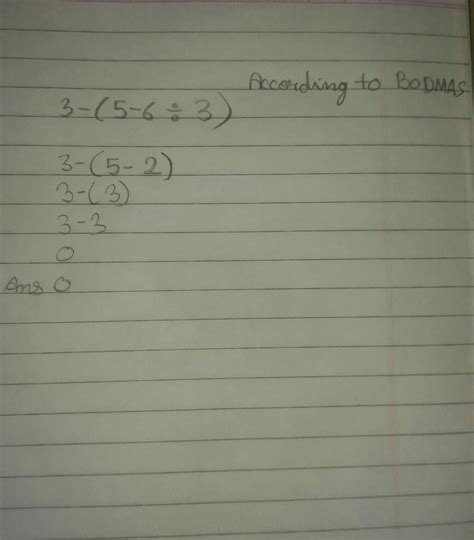 According to BODMAS
3-(5-6÷3)
3-(5-2)
3-(3)
3-3
0
Ans 0